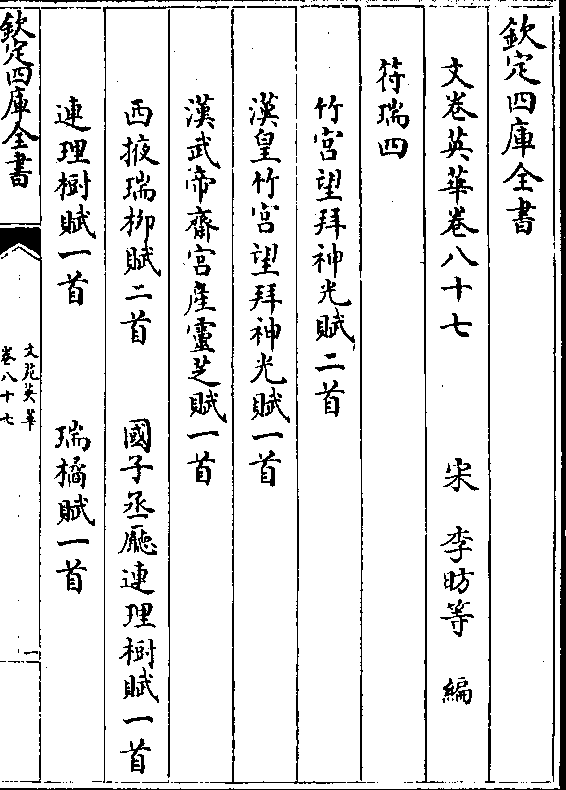 欽定四庫全書
文卷英華卷八十七 宋 李昉等 編
符瑞四
竹宮望拜神光賦二首
漢皇竹宮望拜神光賦一首
漢武帝齋宮產靈芝賦一首
西掖瑞柳賦二首 國子丞廳連理樹賦一首
連理樹賦一首 瑞橘賦一首
欽定四庫全書
文苑英華
卷八十七
一